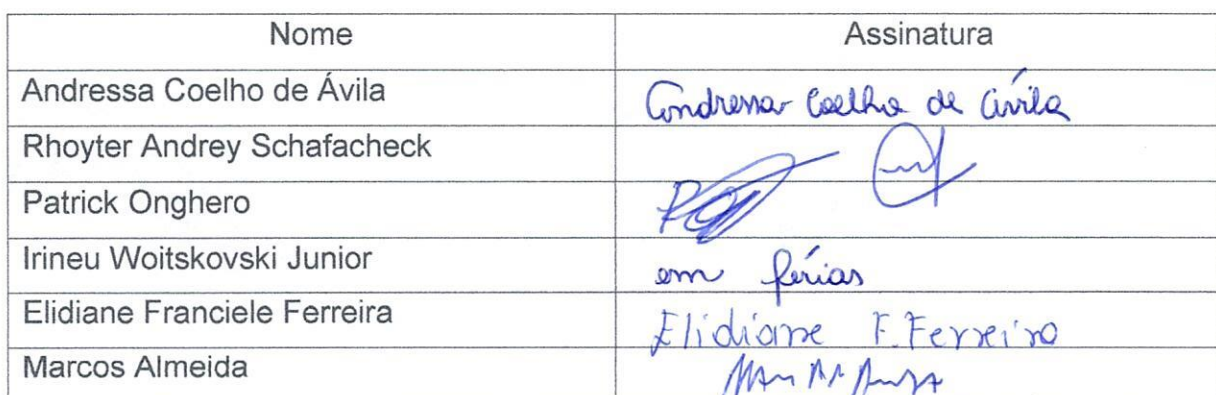 Nome Assinatura
Andressa Coelho de Ávila Andressa Coelho de Ávila
Rhoyter Andrey Schafacheck
Patrick Onghero
Irineu Woitskovski Junior em férias
Elidiane Franciele Ferreira Elidiane F. Ferreira
Marcos Almeida